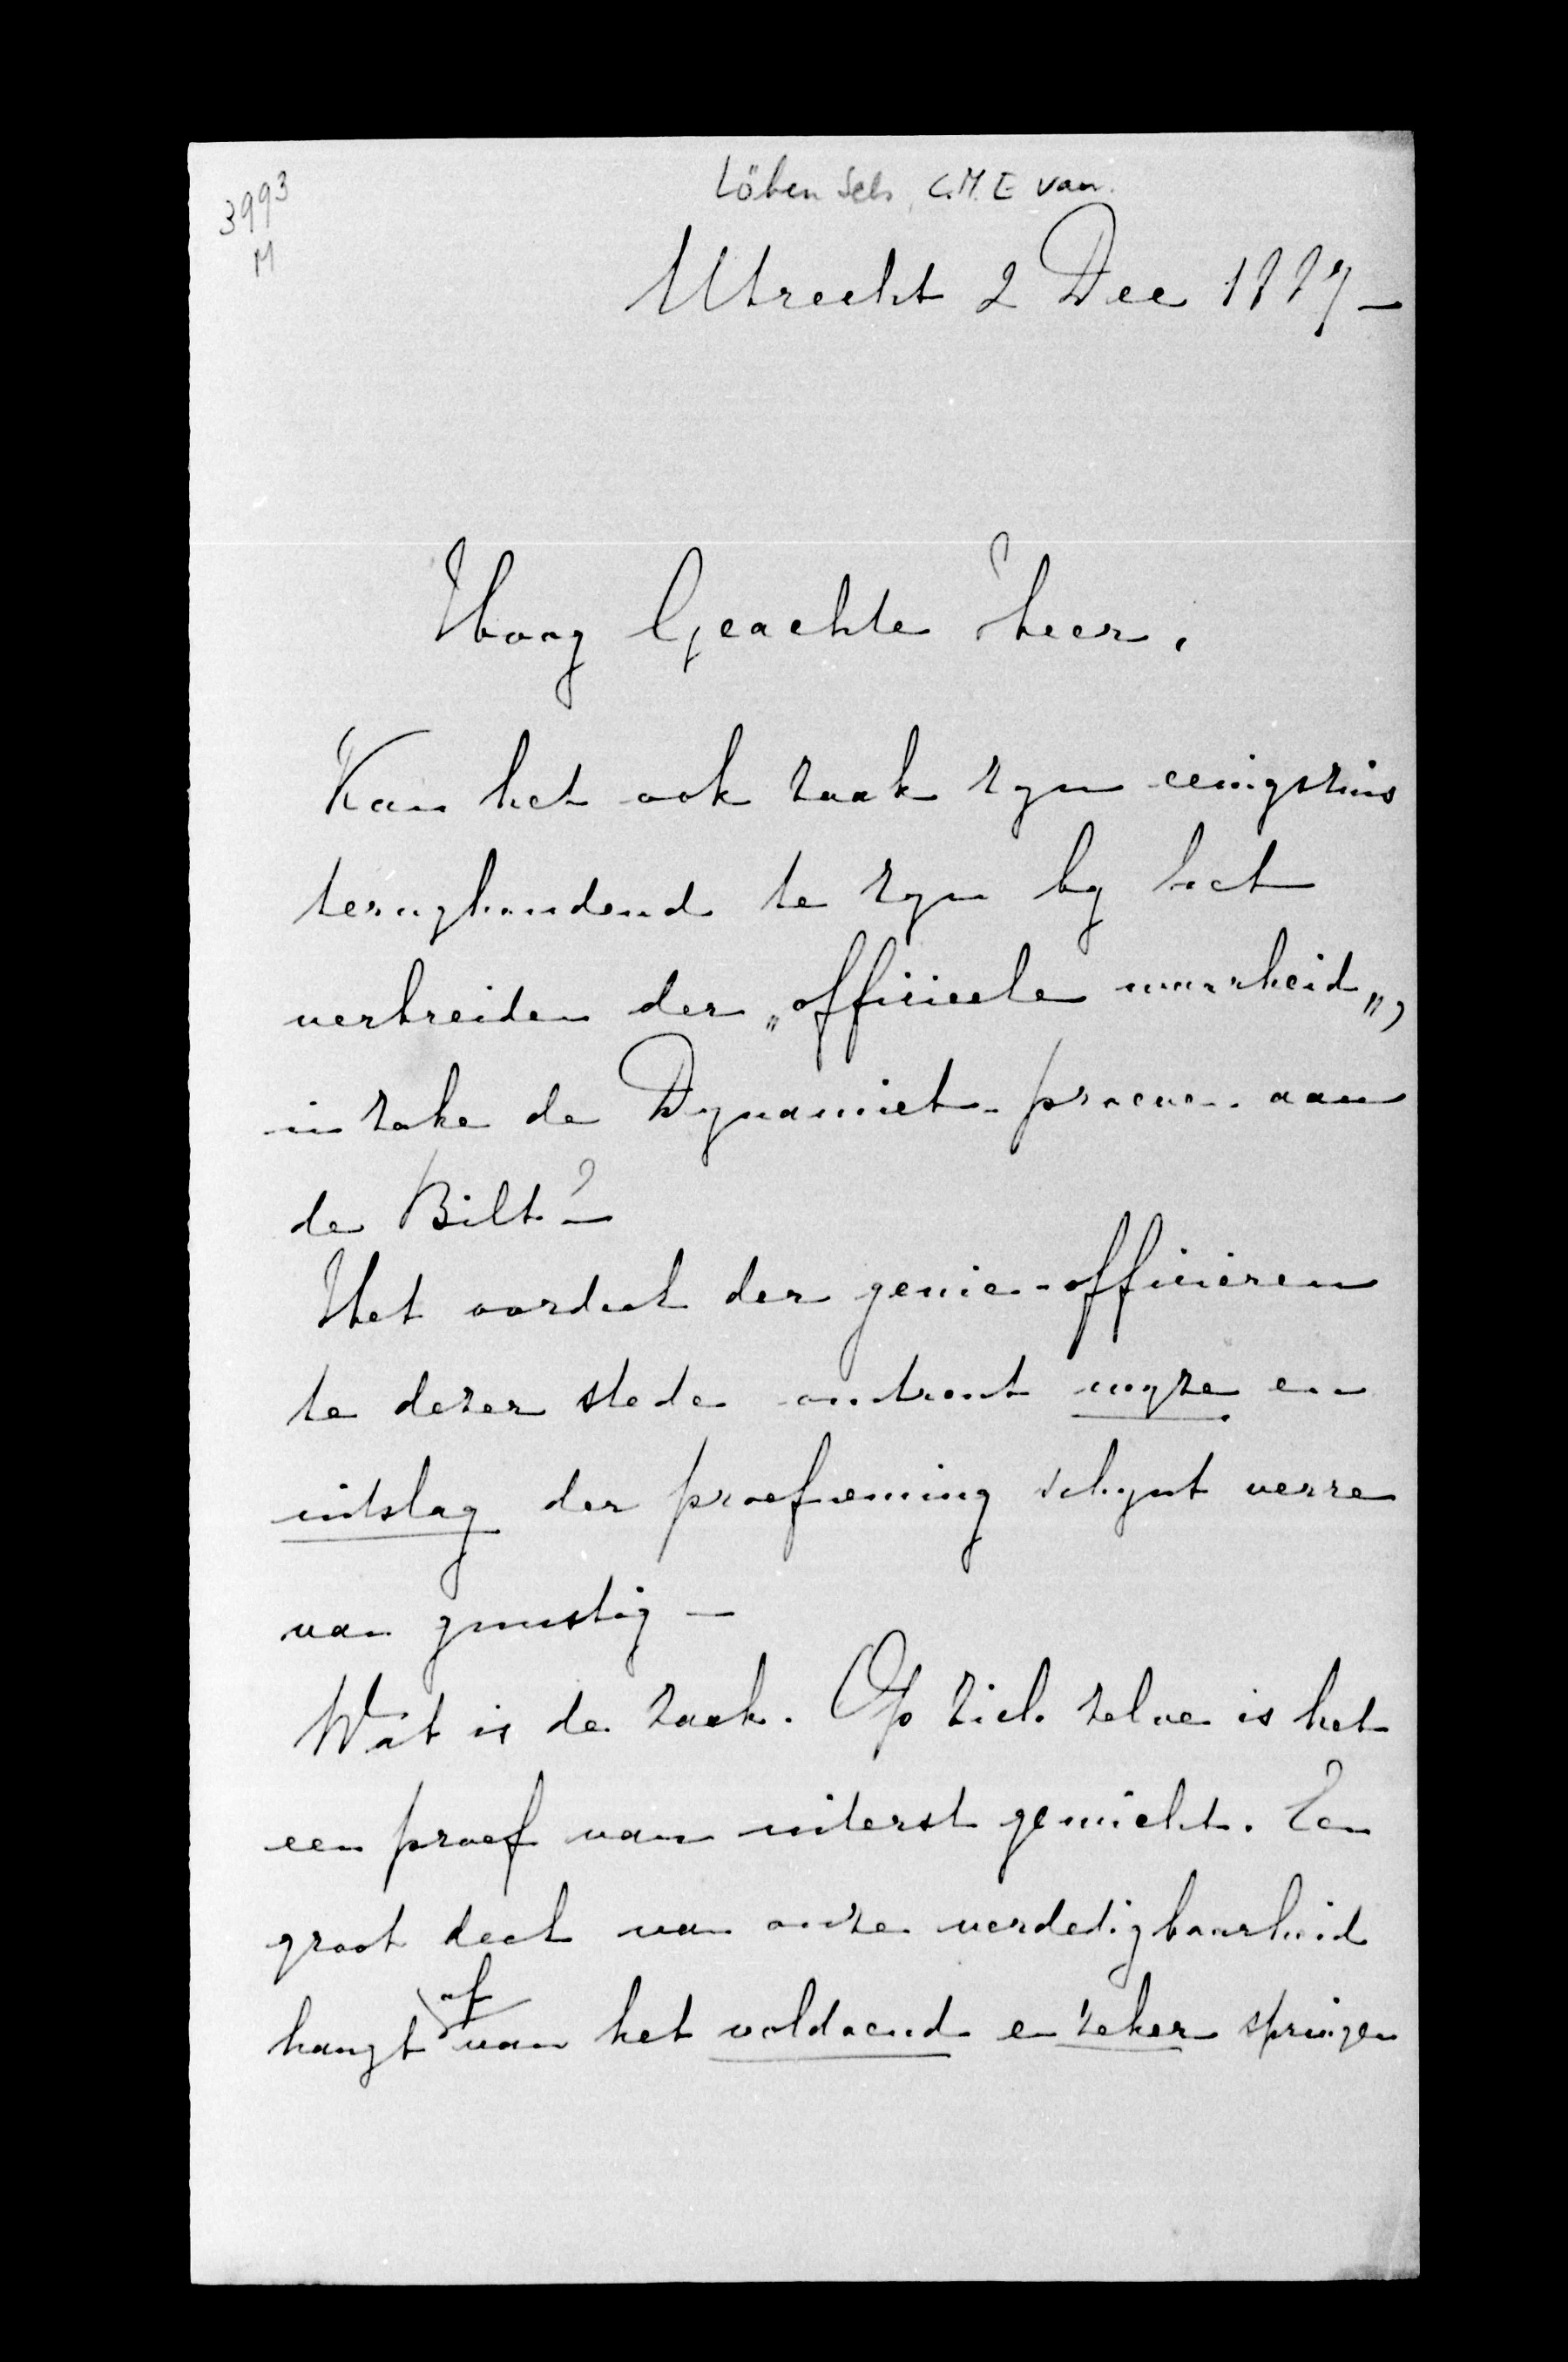 3993
M
Löben Sels, C.M.E van.
Utrecht 2 Dec 1887 –
Hoog Geachte heer,
Kan het ook zaak zyn eenigszins
terughoudend te zyn by het
verbreiden der „officieele waarheid„,
in zake de Dynamiet-proeven aan
de Bilt? –
Het oordeel der genie-officieren
te dezer stede omtrent wyze en
uitslag der proefneming schynt verre
van gunstig –
Wat is de zaak. Op zich zelve is het
een proef van uiterst gewicht. Een
groot deel van onze verdedigbaarheid
hangt af van het voldoend en zeker springen